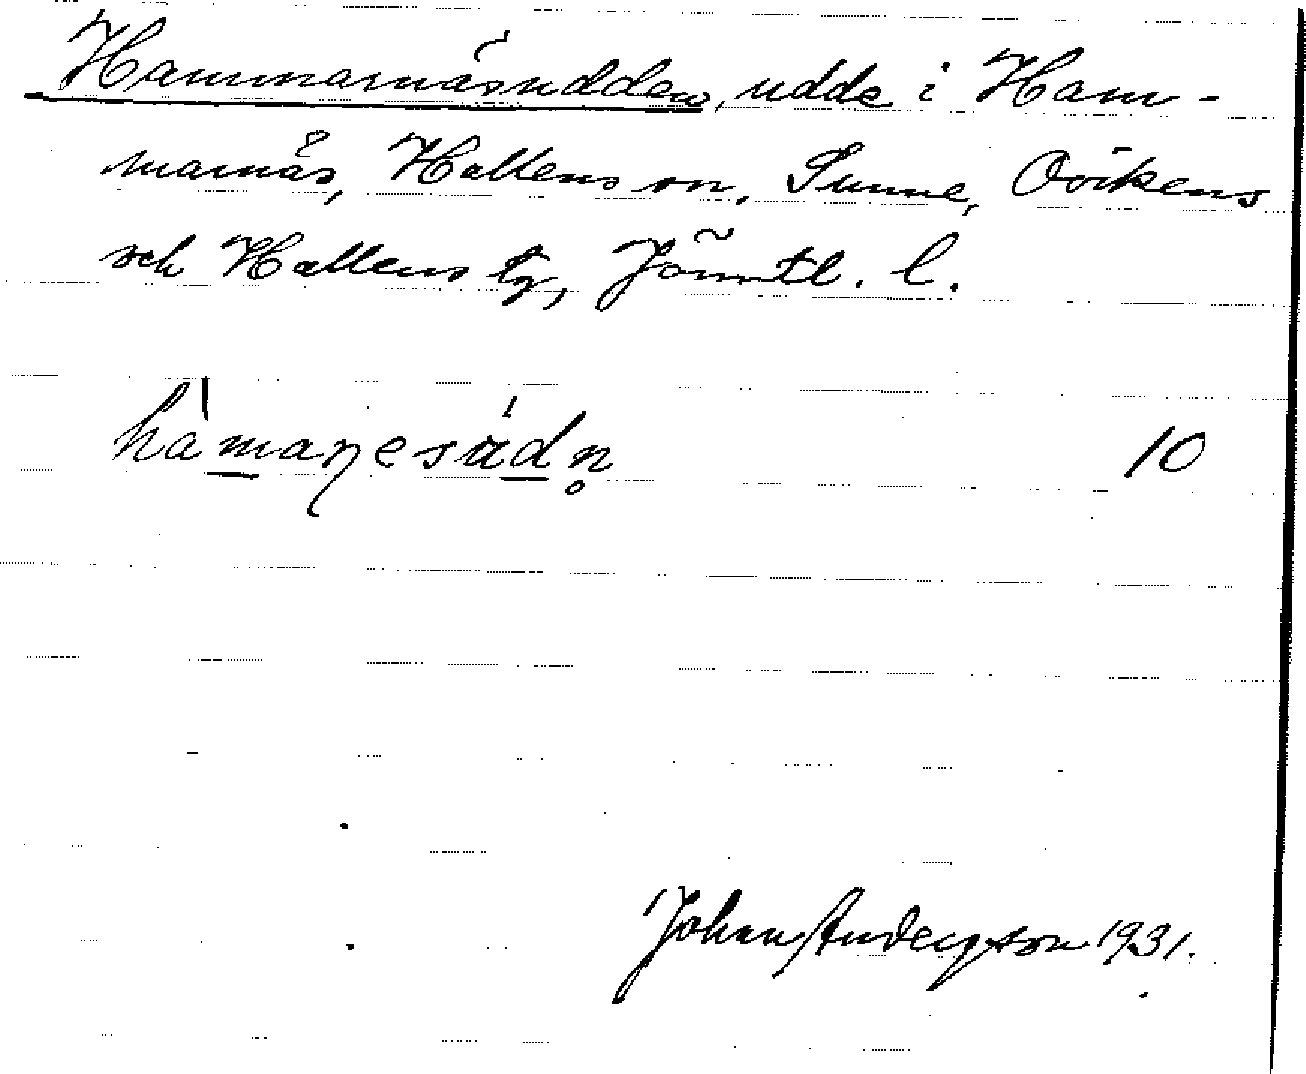 Hammarnäsudden, udde i Ham-
marnäs, Hallens sn, Sunne, Ovikens
och Hallens tg, Jämtl. l.
hàmaŋesúdn̥ 10
Johan Anderson 1931.